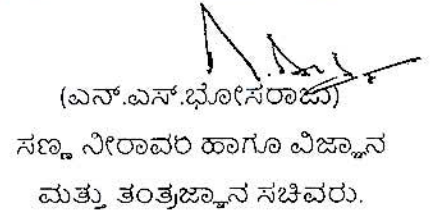 (ಎನ್.ಎಸ್.ಭೋಸರಾಜು)
ಸಣ್ಣ ನೀರಾವರಿ ಹಾಗೂ ವಿಜ್ಞಾನ
ಮತ್ತು ತಂತ್ರಜ್ಞಾನ ಸಚಿವರು.